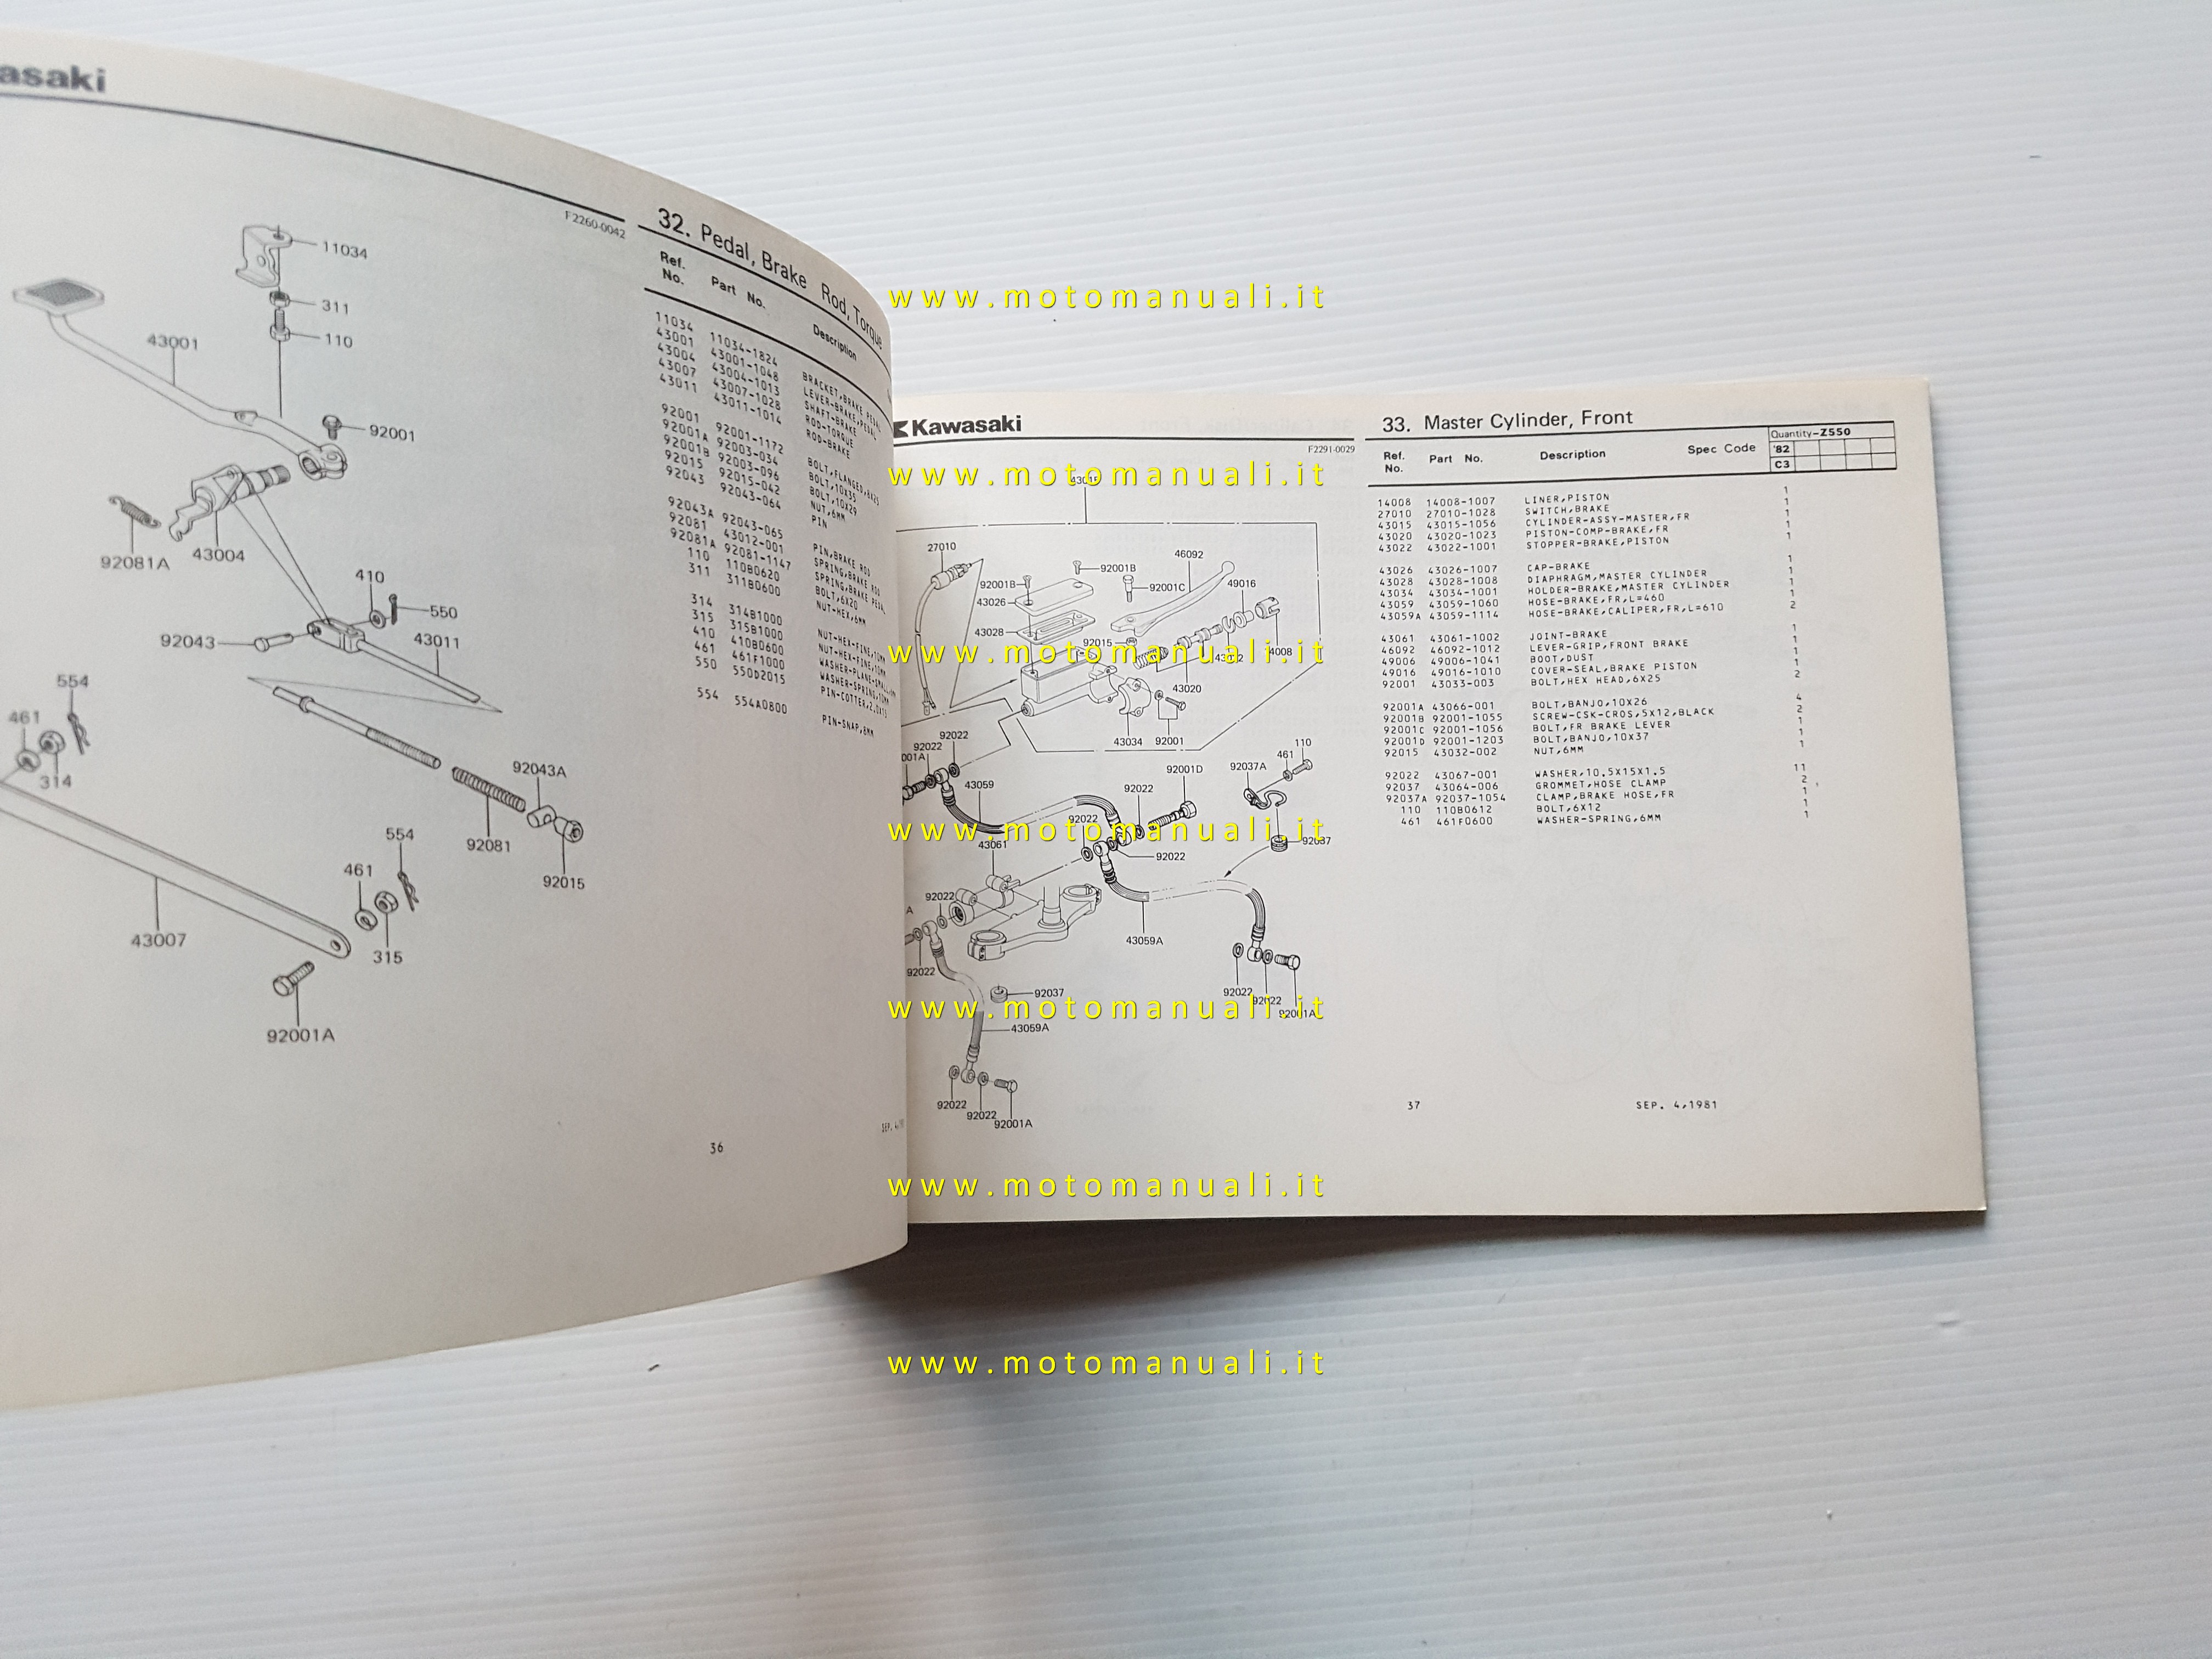 asaki
F2260-0042
11034
311
110
43001
92001
92081A
43004
410
550
92043
43011
554
461
314
92043A
92081
92015
554
461
43007
315
92001A
32. Pedal, Brake Rod, Torque
Ref. No. Part No. Description
11034 11034-1824 BRACKET,BRAKE PEDAL
43001 43001-1048 LEVER-BRAKE,PEDAL
43004 43004-1013 SHAFT-BRAKE
43007 43007-1028 ROD-TORQUE
43011 43011-1014 ROD-BRAKE
92001 92001-1172 BOLT,FLANGED,8X25
92001A 92003-034 BOLT,10X35
92001B 92003-096 BOLT,10X29
92015 92015-042 NUT,6MM
92043 92043-064 PIN
92043A 92043-065 PIN,BRAKE ROD
92081 43012-001 SPRING,BRAKE ROD
92081A 92081-1147 SPRING,BRAKE PEDAL
110 110B0620 BOLT,6X20
311 311B0600 NUT-HEX,6MM
314 314B1000 NUT-HEX-FINE,10MM
315 315B1000 NUT-HEX-FINE,10MM
410 410B0600 WASHER-PLANE-SMALL,6MM
461 461F1000 WASHER-SPRING,10MM
550 550D2015 PIN-COTTER,2.0X15
554 554A0800 PIN-SNAP,8MM
36
SEP. 4,
Kawasaki
F2291-0029
27010
92001B
92001B
46092
43026
92001C
49016
43028
92015
43020
43034
92001
92022
92022
43059
92022
92001D
92037A
461
110
92022
92037
43061
92022
92022
43059A
92022
92037
43059A
92022
92022
92001A
92022
92022
92001A
33. Master Cylinder, Front
Ref. No. Part No. Description Spec Code
Quantity-Z550
'82
C3
14008 14008-1007 LINER,PISTON 1
27010 27010-1028 SWITCH,BRAKE 1
43015 43015-1056 CYLINDER-ASSY-MASTER,FR 1
43020 43020-1023 PISTON-COMP-BRAKE,FR 1
43022 43022-1001 STOPPER-BRAKE,PISTON 1
43026 43026-1007 CAP-BRAKE 1
43028 43028-1008 DIAPHRAGM,MASTER CYLINDER 1
43034 43034-1001 HOLDER-BRAKE,MASTER CYLINDER 1
43059 43059-1060 HOSE-BRAKE,FR,L=460 1
43059A 43059-1114 HOSE-BRAKE,CALIPER,FR,L=610 2
43061 43061-1002 JOINT-BRAKE 1
46092 46092-1012 LEVER-GRIP,FRONT BRAKE 1
49006 49006-1041 BOOT,DUST 1
49016 49016-1010 COVER-SEAL,BRAKE PISTON 1
92001 43033-003 BOLT,HEX HEAD,6X25 2
92001A 43066-001 BOLT,BANJO,10X26 4
92001B 92001-1055 SCREW-CSK-CROS,5X12,BLACK 2
92001C 92001-1056 BOLT,FR BRAKE LEVER 1
92001D 92001-1203 BOLT,BANJO,10X37 1
92015 43032-002 NUT,6MM 1
92022 43067-001 WASHER,10.5X15X1.5 11
92037 43064-006 GROMMET,HOSE CLAMP 2
92037A 92037-1054 CLAMP,BRAKE HOSE,FR 1
110 110B0612 BOLT,6X12 1
461 461F0600 WASHER-SPRING,6MM 1
37
SEP. 4,1981
www.motomanuali.it
www.motomanuali.it
www.motomanuali.it
www.motomanuali.it
www.motomanuali.it
www.motomanuali.it
www.motomanuali.it